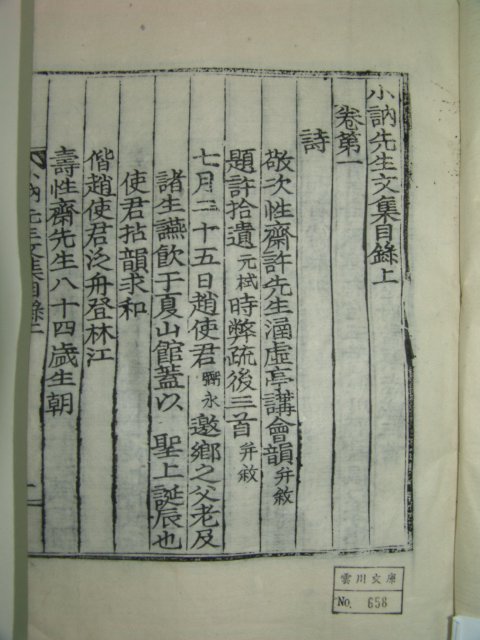 小訥先生文集目錄上
卷第一
詩
敬次性齋許先生涵虛亭講會韻并敘
題許拾遺元栻時弊疏後三首并敘
七月二十五日趙使君弼永邀鄉之父老及
諸生讌飲于夏山館蓋以 聖上誕辰也
使君拈韻求和
偕趙使君泛舟登林江
壽性齋先生八十四歲生朝
小訥先生文集目錄上
雲川文庫
No. 658